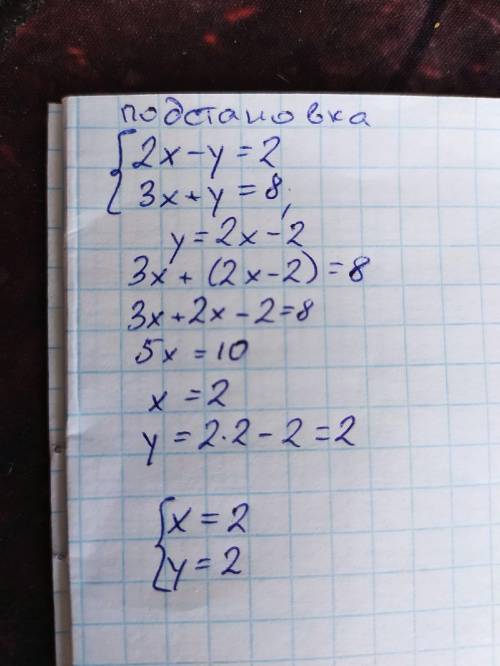 подстановка
{2x-y=2
3x+y=8,
y=2x-2
3x+(2x-2)=8
3x+2x-2=8
5x=10
x=2
y=2·2-2=2
{x=2
y=2